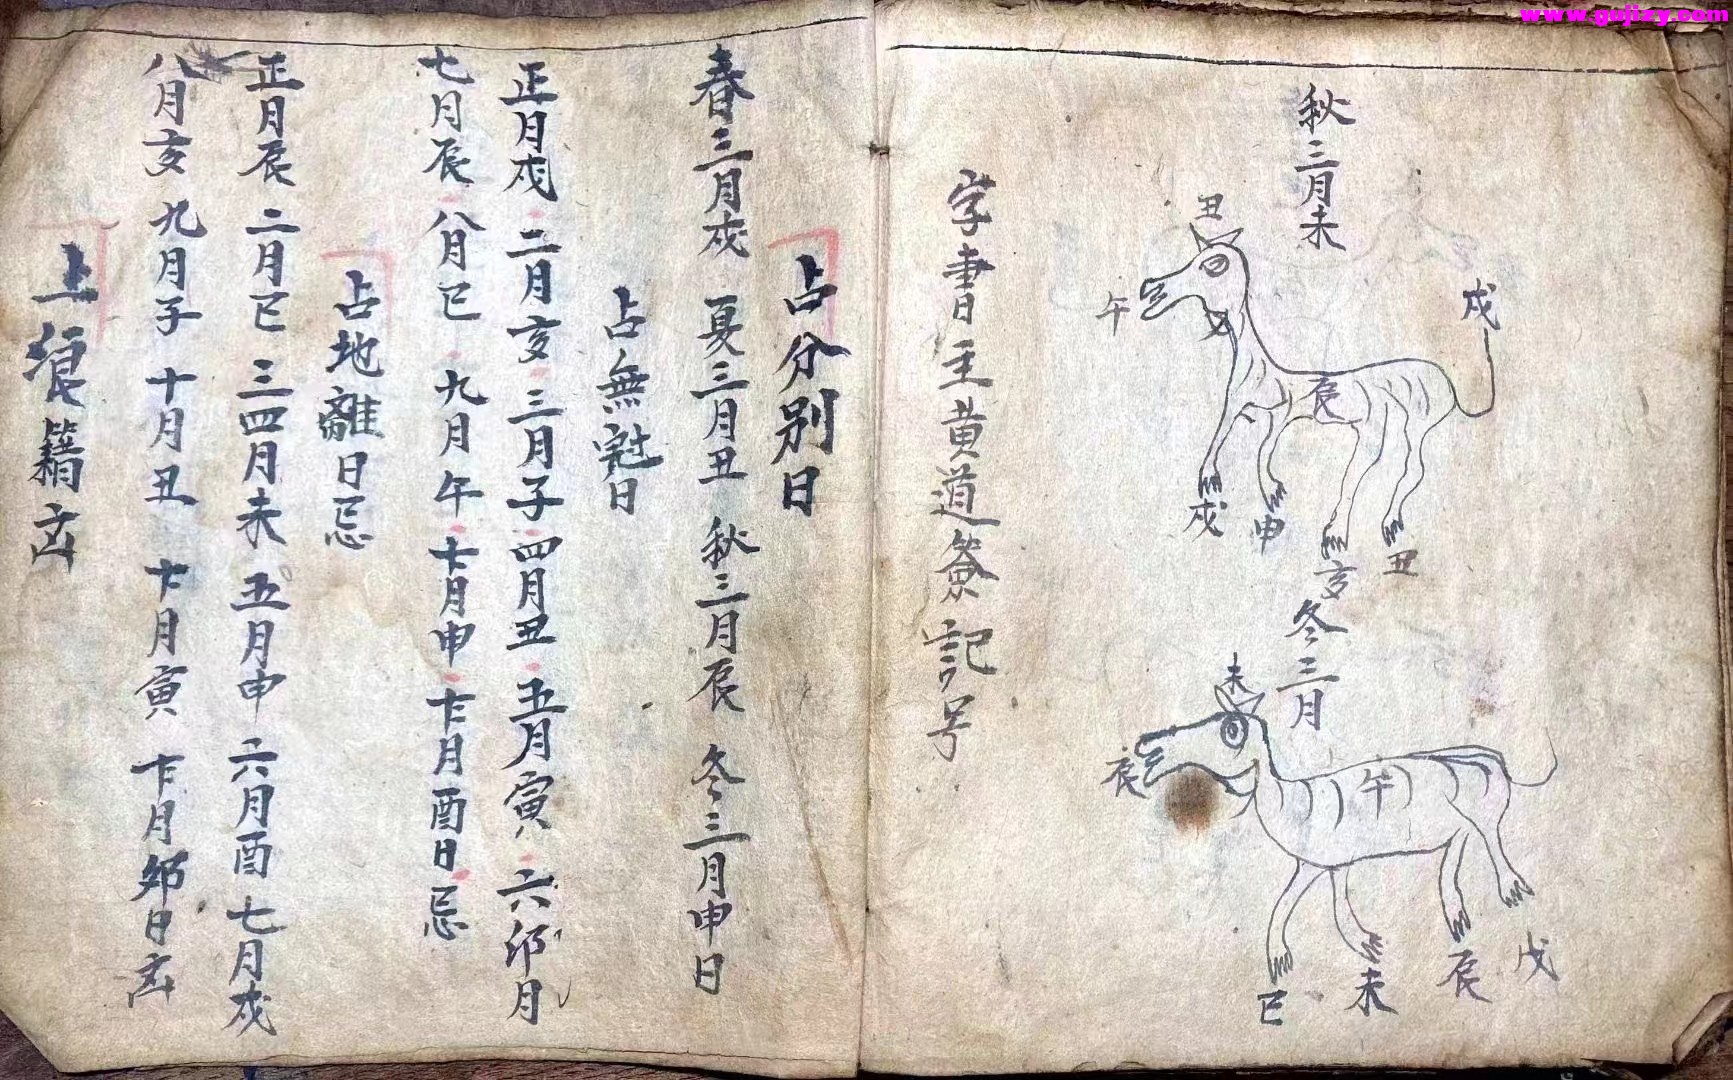 www.gujizy.com
秋三月未
丑
午
戌
辰
戌
申
亥
丑
冬三月
未
辰
午
巳
未
辰
戊
字書主黄道簽記号
占分别日
春三月戌 夏三月丑 秋三月辰 冬三月申日
占無冠日
正月戌 二月亥 三月子 四月丑 五月寅 六卯月
七月辰 八月巳 九月午 十月申 十月酉日忌
占地離日忌
正月辰 二月巳 三四月未 五月申 六月酉 七月戌
八月亥 九月子 十月丑 十月寅 十月卯日凶
上浪籍凶